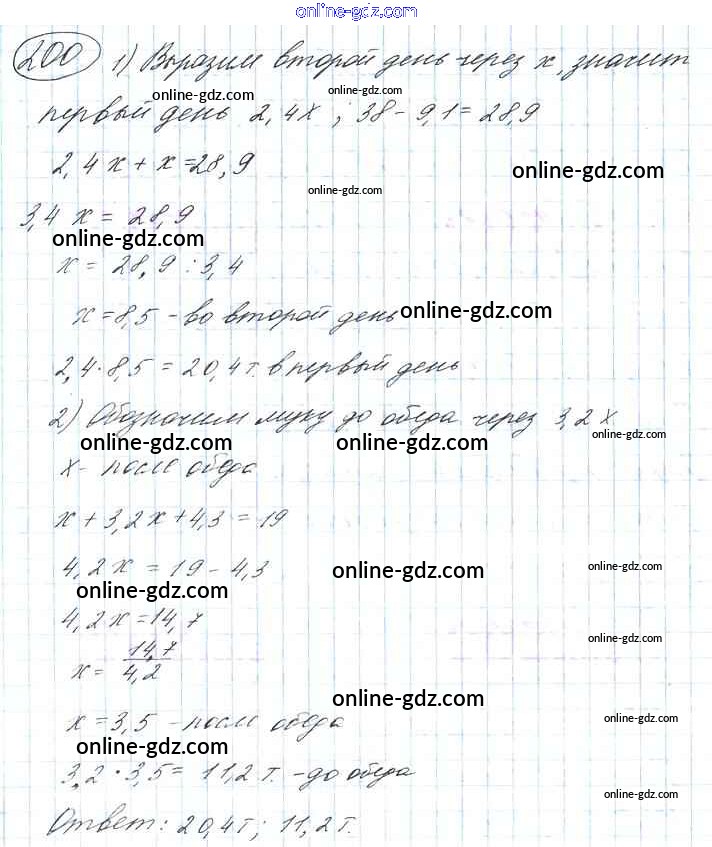 online-gdz.com
200 1) Выразим второй день через х, значит
online-gdz.com online-gdz.com
первый день 2,4х ; 38 - 9,1 = 28,9
online-gdz.com
2,4х + х = 28,9
online-gdz.com
online-gdz.com
3,4 х = 28,9
online-gdz.com
х = 28,9 : 3,4
х = 8,5 - во второй день online-gdz.com
2,4 · 8,5 = 20,4 т. в первый день
2) Обозначим муку до обеда через 3,2 х
online-gdz.com online-gdz.com online-gdz.com
х - после обеда
х + 3,2х + 4,3 = 19
4,2 х = 19 - 4,3 online-gdz.com online-gdz.com
online-gdz.com
4,2х = 14,7
online-gdz.com
х = 14,7
4,2
online-gdz.com
х = 3,5 - после обеда online-gdz.com
online-gdz.com
3,2 · 3,5 = 11,2 т. - до обеда
online-gdz.com
Ответ: 20,4 т; 11,2 т.